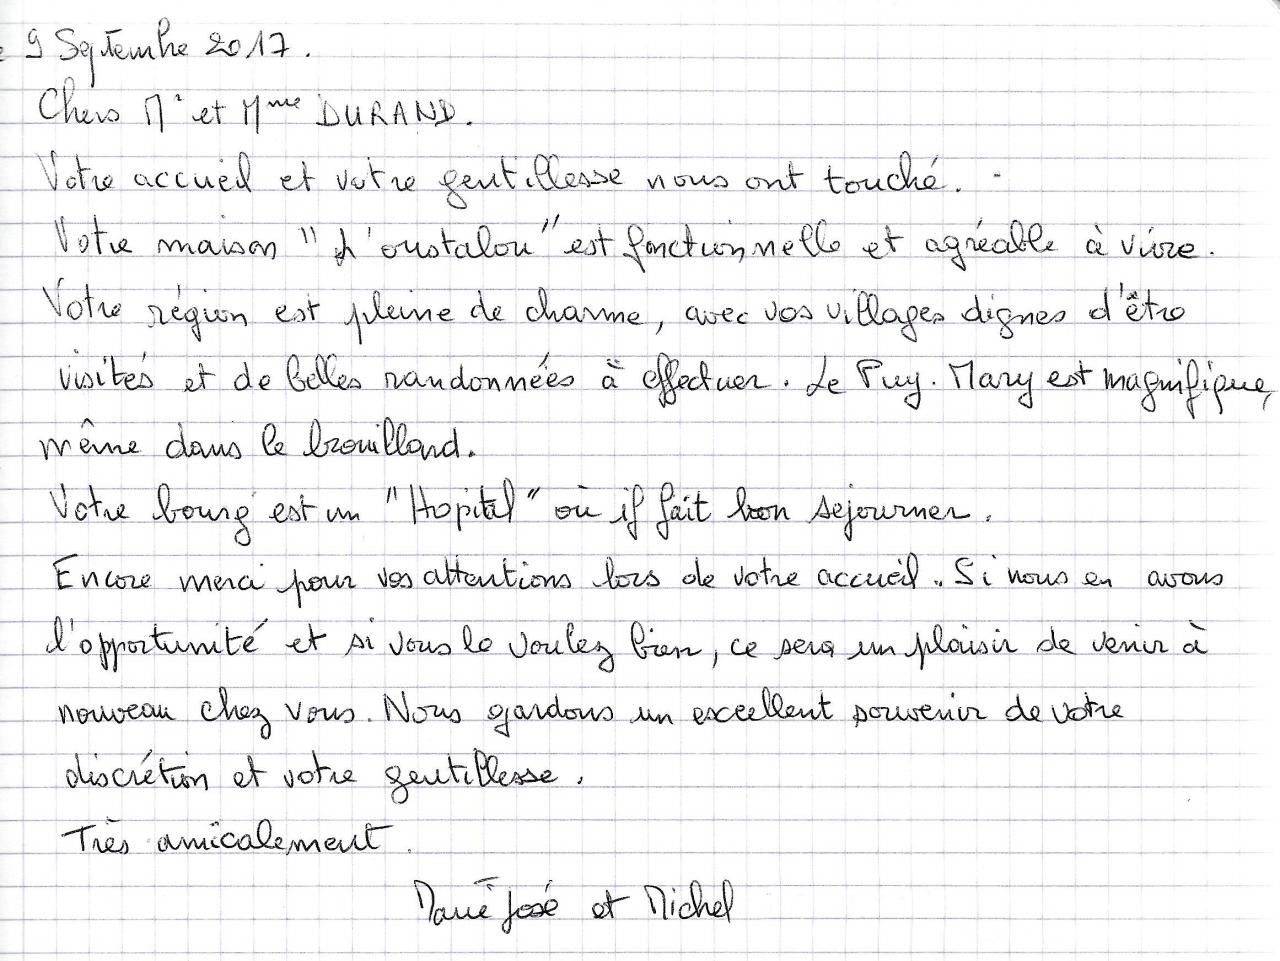 9 Septembre 2017.
Chers Mr et Mme DURAND.
Votre accueil et votre gentillesse nous ont touché.
Votre maison "L'oustalou" est fonctionnelle et agréable à vivre.
Votre région est pleine de charme, avec vos villages dignes d'être
visités et de belles randonnées à effectuer. Le Puy-Mary est magnifique,
même dans le brouillard.
Votre bourg est un "Hopital" où il fait bon sejourner.
Encore merci pour vos attentions lors de votre accueil. Si nous en avons
l'opportunité et si vous le voulez bien, ce sera un plaisir de venir à
nouveau chez vous. Nous gardons un excellent souvenir de votre
discrétion et votre gentillesse.
Très amicalement.
Marie José et Michel